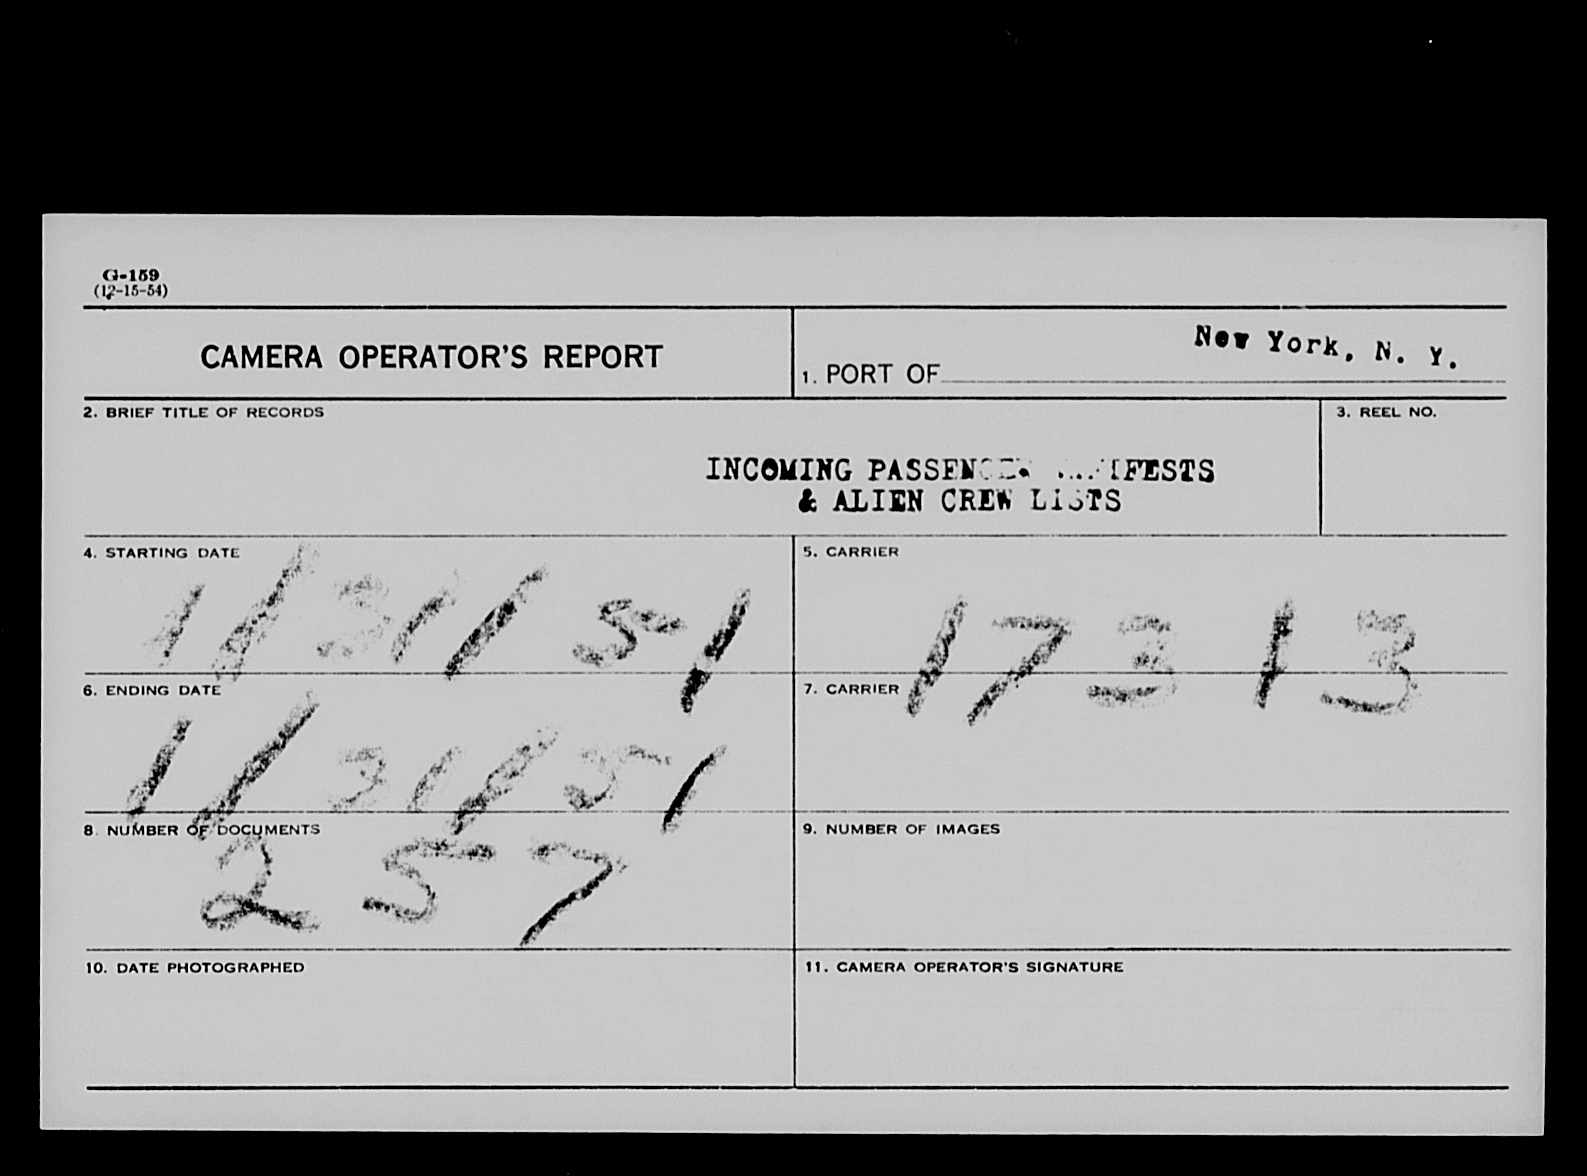 G-159
(12-15-54)
CAMERA OPERATOR'S REPORT
1. PORT OF New York, N. Y.
2. BRIEF TITLE OF RECORDS
3. REEL NO.
INCOMING PASSENGER MANIFESTS
& ALIEN CREW LISTS
4. STARTING DATE
1/31/51
5. CARRIER
17313
6. ENDING DATE
1/31/51
7. CARRIER
8. NUMBER OF DOCUMENTS
257
9. NUMBER OF IMAGES
10. DATE PHOTOGRAPHED
11. CAMERA OPERATOR'S SIGNATURE